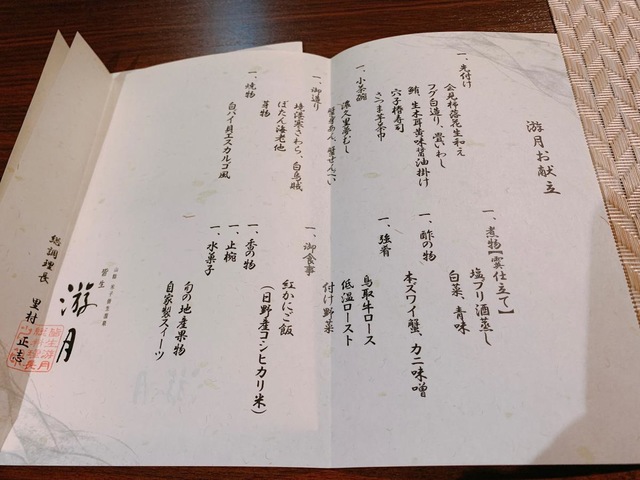 游月お献立
一、先付け
会見柿落花生和え
フグ白造り、雲いわし
鮪、生木耳黄味醤油掛け
穴子棒寿司
さつま芋茶巾
一、小茶碗
濃久里夢むし
蟹身あん、蟹せんべい
一、御造り
境港産さわら、白烏賊
ぼたん海老他
芽物
一、焼物
白バイ貝エスカルゴ風
一、煮物【霙仕立て】
塩ブリ酒蒸し
白菜、青味
一、酢の物
本ズワイ蟹、カニ味噌
一、強肴
鳥取牛ロース
低温ロースト
付け野菜
一、御食事
紅かにご飯
(日野産コシヒカリ米)
一、香の物
一、止椀
一、水菓子
旬の地産果物
自家製スイーツ
皆生
游月
総調理長 里村 正幸